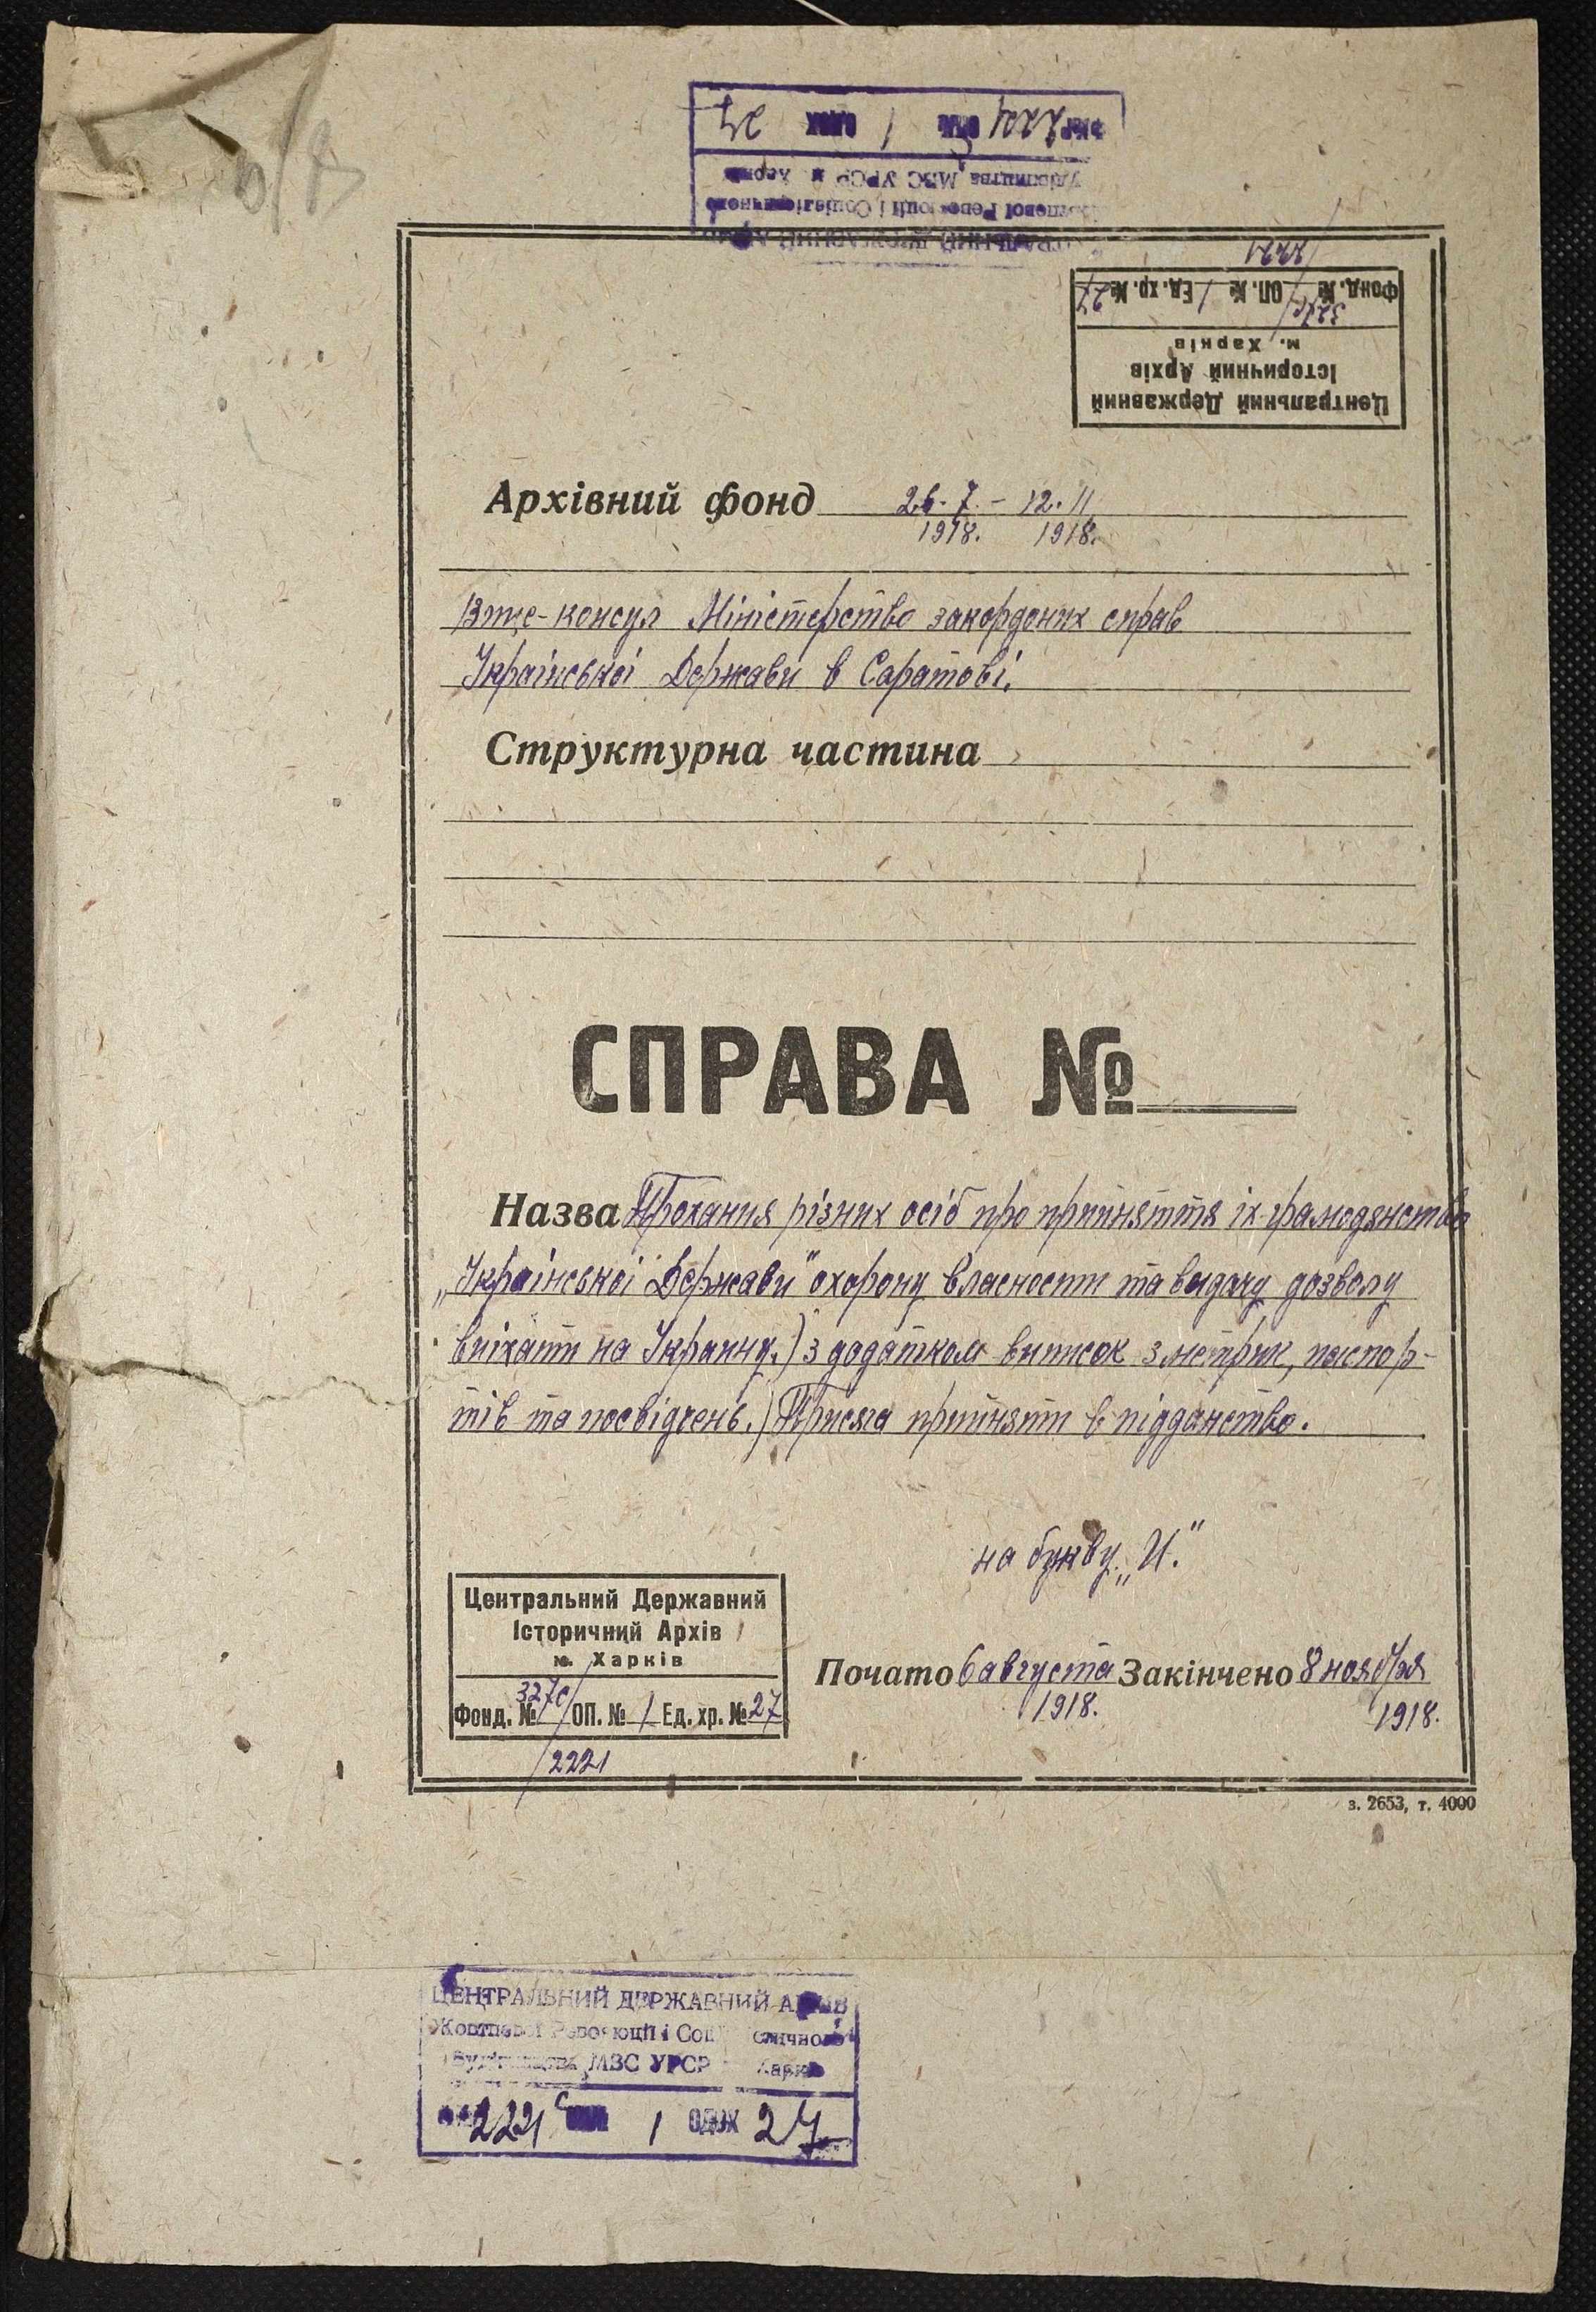 б/в
ФКР 2221 ОПС 1 ОДОХ 27
УРСР
Фонд. № 327с/ ОП. № 1 Ед. хр. № 27
/2221
м. Харків
Історичний Архів
Центральний Державний
Архівний фонд 26.7. – 12.11
1918. 1918.
Віце-консул Міністерство закордоних справ
Української Держави в Саратові.
Структурна частина
СПРАВА №
Назва Прохання різних осіб про прийняття їх громодянство
„Української Держави" охорону власности та видачу дозволу
виїхати на Украину.) з додатком виписок з метрик, паспор-
тів та посвідчень.) Присяга прийняти в підданство.
на букву „И."
Центральний Державний
Історичний Архів
м. Харків
Фонд. № 327с/ ОП. № 1 Ед. хр. № 27
/2221
Почато 6 августа Закінчено 8 ноября
1918. 1918.
з. 2653, т. 4000
ЦЕНТРАЛЬНИЙ ДЕРЖАВНИЙ АРХІВ
Жовтневої Революції і Соціалістичного
Будівництва МВС УРСР Харків
2221 с 1 ОДОХ 27